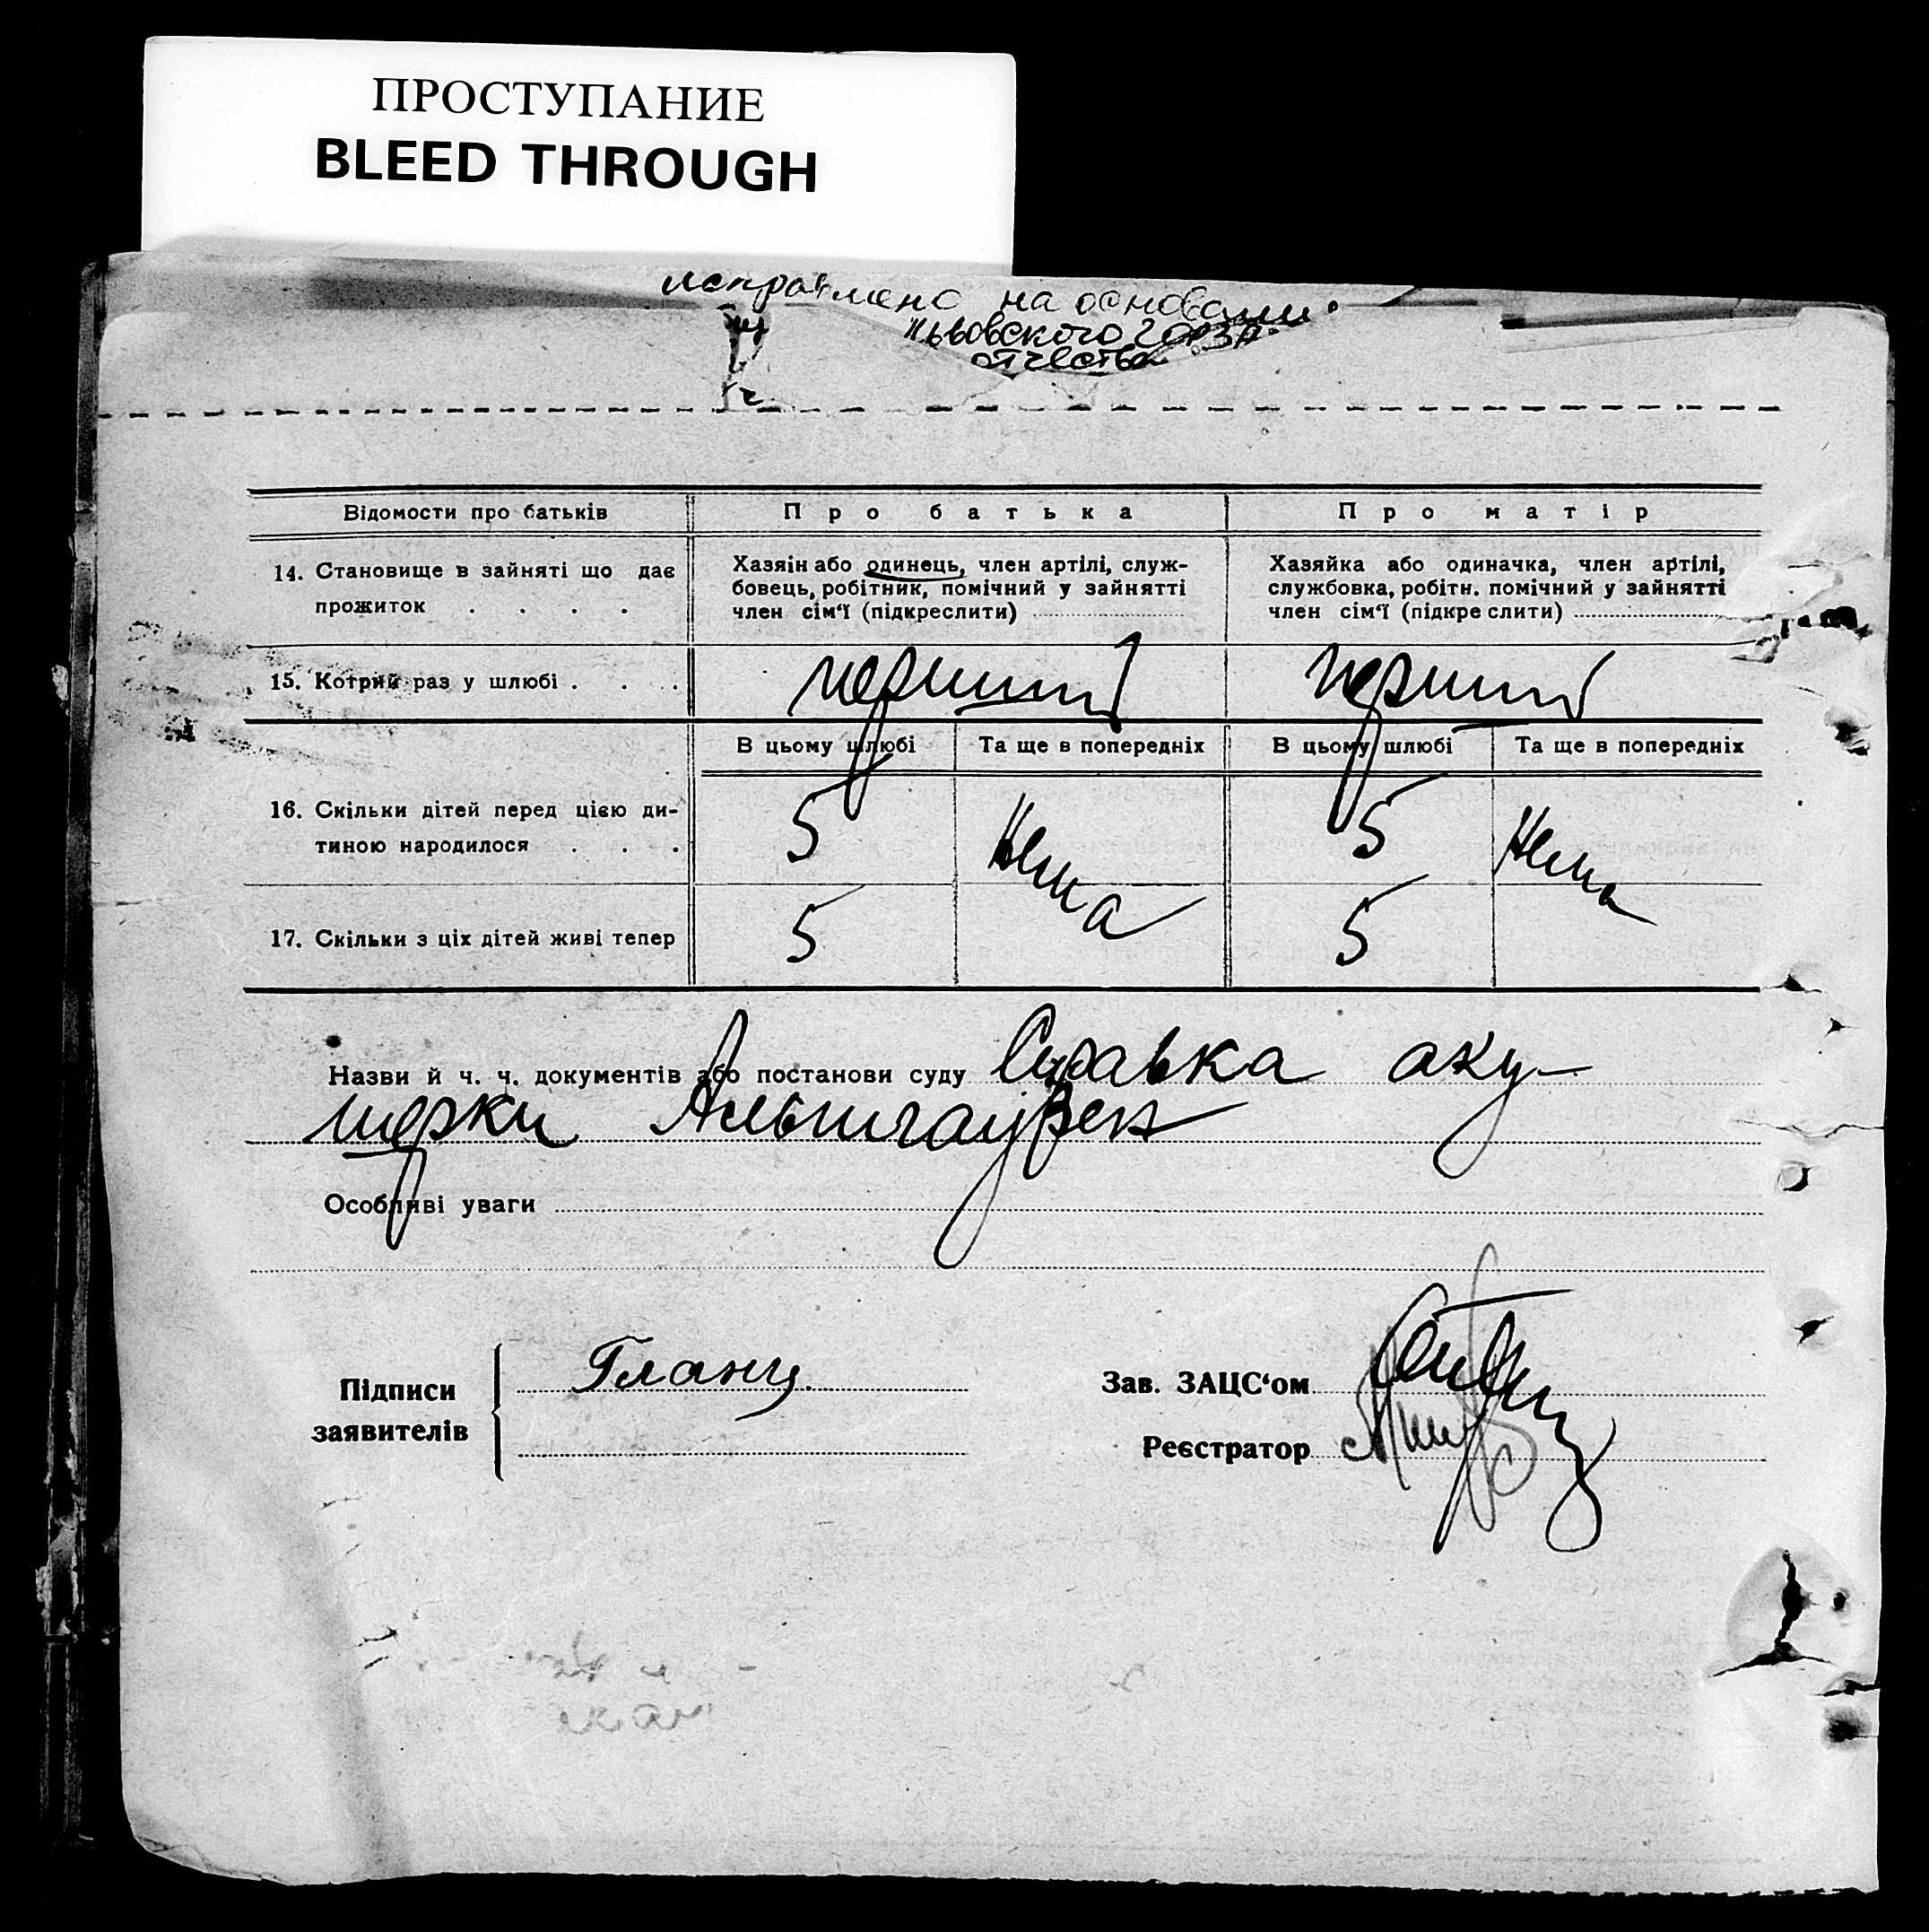 ПРОСТУПАНИЕ
BLEED THROUGH
исправлено на основании
Львовского
отчества
Відомости про батьків
Про батька
Про матір
14. Становище в зайняті що дає
прожиток . . . .
Хазяїн або одинець, член артілі, служ-
бовець, робітник, помічний у зайнятті
член сім'ї (підкреслити)
Хазяйка або одиначка, член артілі,
службовка, робітн. помічний у зайнятті
член сім'ї (підкреслити)
15. Котрий раз у шлюбі . . .
перший
перший
В цьому шлюбі
Та ще в попередніх
В цьому шлюбі
Та ще в попередніх
16. Скільки дітей перед цією ди-
тиною народилося . . .
5
Нема
5
Нема
17. Скільки з ціх дітей живі тепер
5
5
Назви й ч. ч. документів або постанови суду Справка аку-
шерки
Особливі уваги
Підписи
заявителів
Гланц
Зав. ЗАЦС'ом
Реєстратор